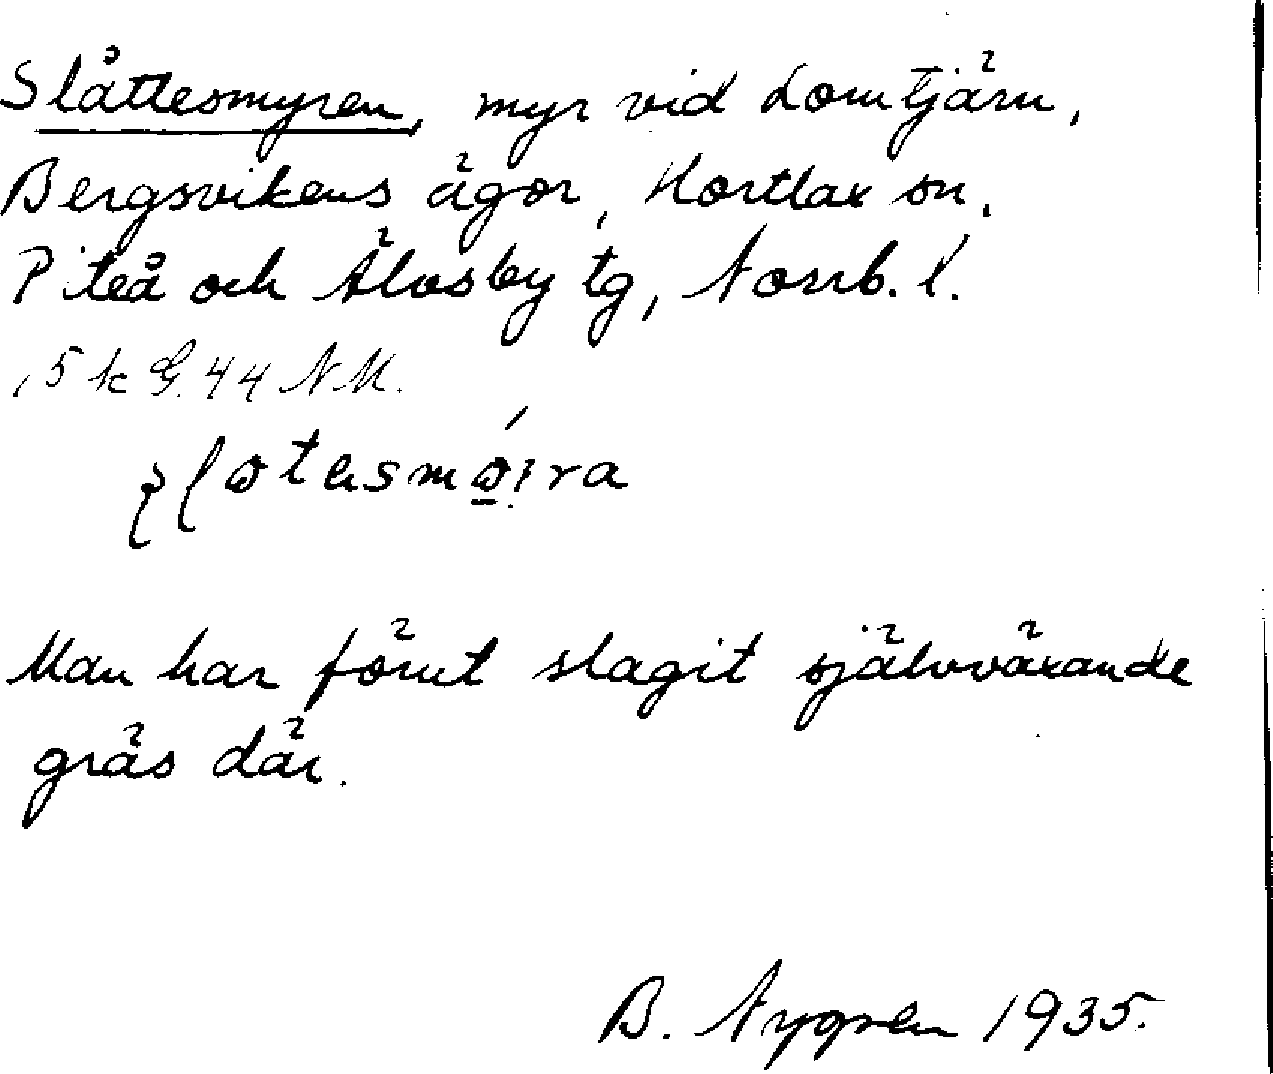 Slåttesmyren, myr vid Lomtjärn,
Bergsvikens ägor, Hortlax sn,
Piteå och Älvsby tg, Norrb. l.
5k G. 44 NM.
Man har förut slagit självväxande
gräs där.
B. Nygren 1935.